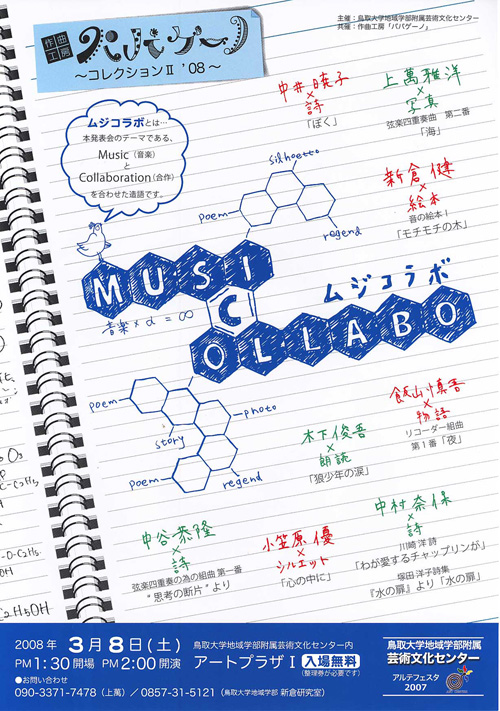 主催：鳥取大学地域学部附属芸術文化センター
共催：作曲工房「パパゲーノ」
作曲
工房
パパゲーノ
～コレクションⅡ ’08～
ムジコラボとは…
本発表会のテーマである、
Music（音楽）
と
Collaboration（合作）
を合わせた造語です。
中井暁子
×
詩
「ぼく」
上萬雅洋
×
写真
弦楽四重奏曲 第二番
「海」
新倉健
×
絵本
音の絵本Ⅰ
「モチモチの木」
silhoette
poem
regend
MUSI
C
OLLABO
ムジコラボ
音楽×α＝∞
poem
photo
story
poem
regend
飯山慎吾
×
物語
リコーダー組曲
第1番「夜」
木下俊吾
×
朗読
「狼少年の涙」
中村奈保
×
詩
川崎 洋 詩
「わが愛するチャップリンが」
塚田 洋子詩集
『水の扉』より「水の扉」
中谷恭隆
×
詩
弦楽四重奏の為の組曲 第一番
“思考の断片”より
小笠原優
×
シルエット
「心の中に」
O₃
-C₂H₅
-O-C₂H₅
C₂H₅OH
2008年 3月8日(土)
PM 1:30 開場 PM 2:00 開演
鳥取大学地域学部附属芸術文化センター内
アートプラザⅠ 入場無料
(整理券が必要です)
●お問い合わせ
090-3371-7478（上萬）／0857-31-5121（鳥取大学地域学部 新倉研究室）
鳥取大学地域学部附属
芸術文化センター
アルテフェスタ
2007